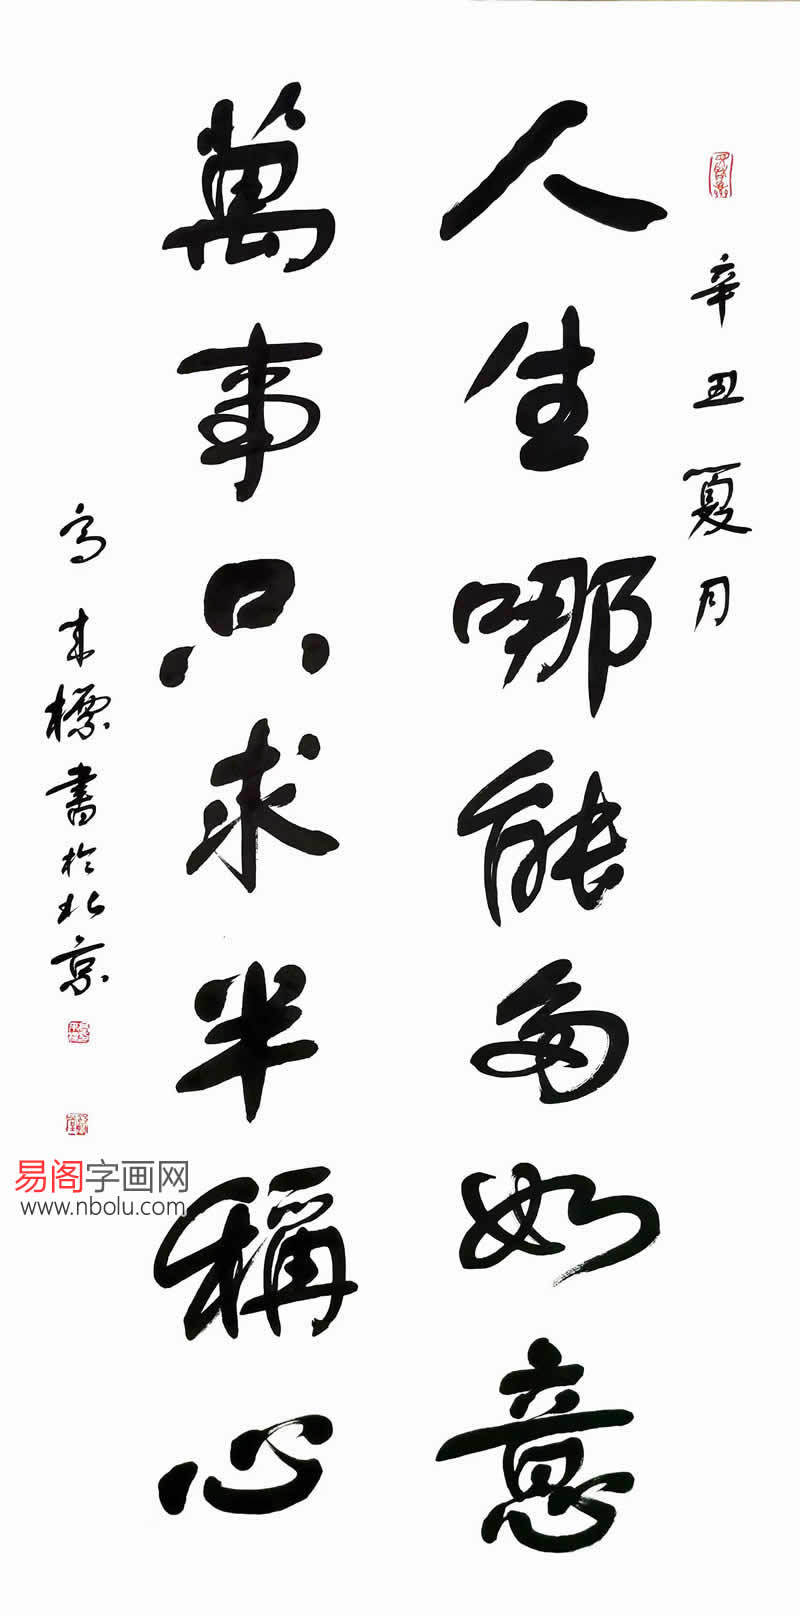 辛丑夏月
人生哪能多如意
萬事只求半稱心
高東標書於北京
易阁字画网
www.nbolu.com